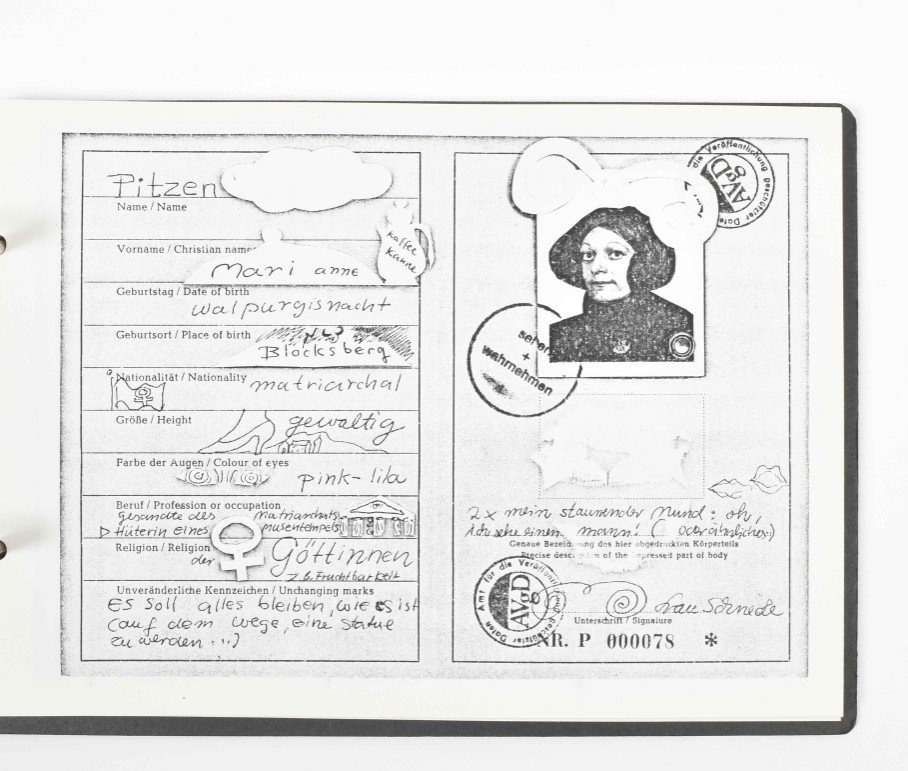 Pitzen
Name / Name
Vorname / Christian name
Mari anne
kaffee
kanne
Geburtstag / Date of birth
walpurgisnacht
Geburtsort / Place of birth
Blocksberg
Nationalität / Nationality
matriarchal
Größe / Height
gewaltig
Farbe der Augen / Colour of eyes
pink-lila
Beruf / Profession or occupation
gesandte des matriarchats
▷ Hüterin eines musentempels
Religion / Religion
der Göttinnen
z.B. Fruchtbarkeit
Unveränderliche Kennzeichen / Unchanging marks
Es soll alles bleiben, wie es ist
(auf dem wege, eine statue
zu werden...)
die Veröffentlichung geschützter Date
AVgD
sehen
+
wahrnehmen
2x mein staunender mund: oh,
ich sehe einen mann! (oder ähnliches:)
Genaue Bezeichnung des hier abgedruckten Körperteils
Precise description of the impressed part of body
Amt für die Veröffentlichung geschützter Daten
AVgD
Unterschrift / Signature
NR. P 000078 *